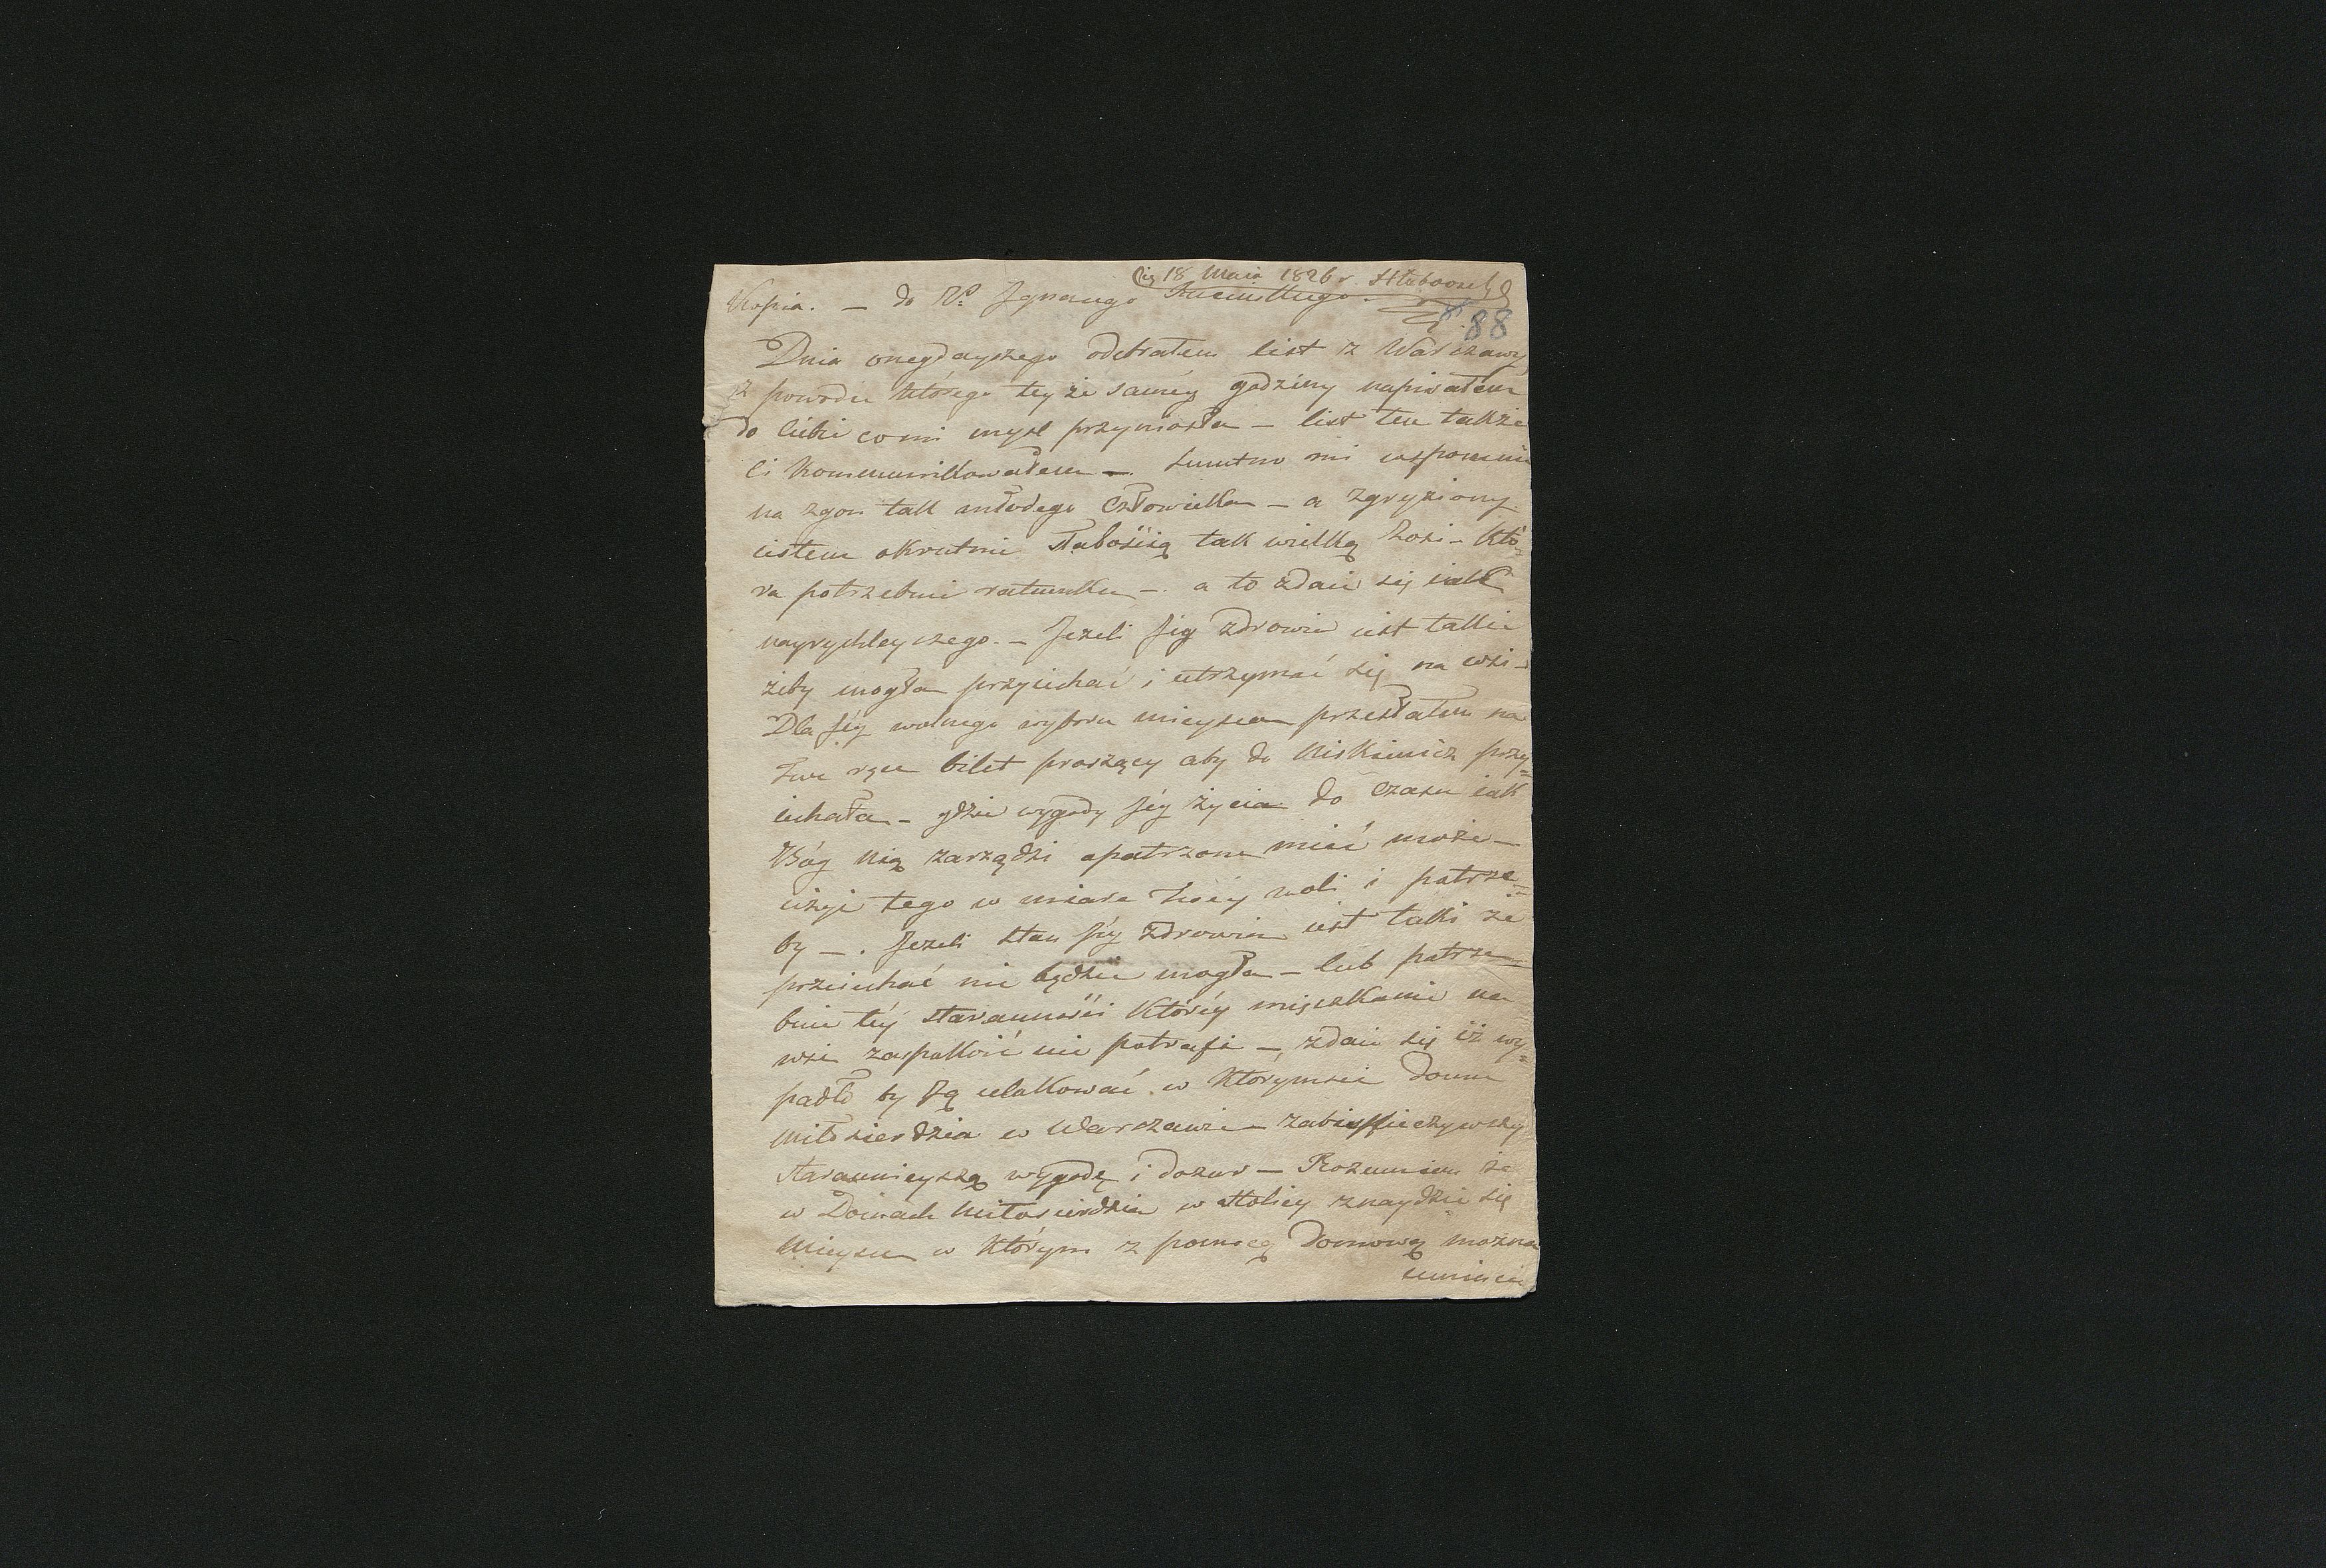 18 Maia 1826 r.
Kopia. — do Ignacego
88
Dnia onegdayszego odebrałem list z Warszawy
z powodu którego tey że saméy godziny napisałem
do Ciebie co mi mysl przyniosła — list ten także
Ci kommunikowałem —. Smutno mi wspomnić
na zgon tak młodego człowieka — a zgryziony
iestem okrutnie słabością tak wielką Zosi — któ-
ra potrzebuie ratunku —. a to zdaie się iak
nayrychleyszego. — Jeżeli Jéy zdrowie iest takie
żeby mogła przyiechać i utrzymać się na wsi —
Dla Jéy wolnego wyboru mieysca przesłałem na
Twe ręce bilet proszący aby do przy=
iechała — gdzie wygody Jéy życia do czasu iak
Bóg nią zarządzi opatrzone mieć może —
użyi tego w miarę Twéy woli i potrze=
by —. Jeżeli stan Jéy zdrowia iest taki że
przeiechać nie będzie mogła — lub potrze
buie téy staranności któréy mięszkanie na
wsi zaspokoić nie potrafi — zdaie się iż wy=
padło by Ją ulokować w którymsci Domu
miłosierdzia w Warszawie — zabiespieczywszy
staranieyszą wygodę i dozur — Rozumiem że
w Domach miłosierdzia w stolicy znaydzie się
mieysce w którym z pomocą domową można